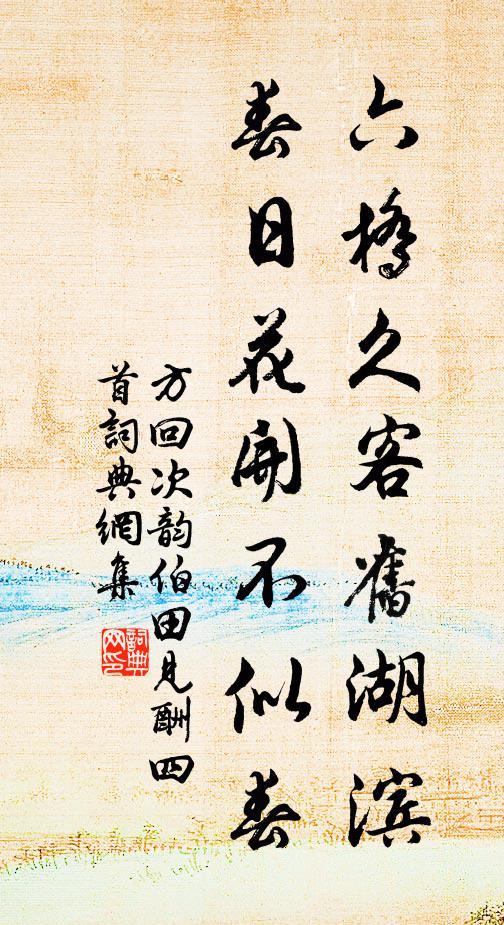 六橋久客舊湖濱
春日花開不似春
方回次韵伯田見酬四
首詞典網集
詞典
网印